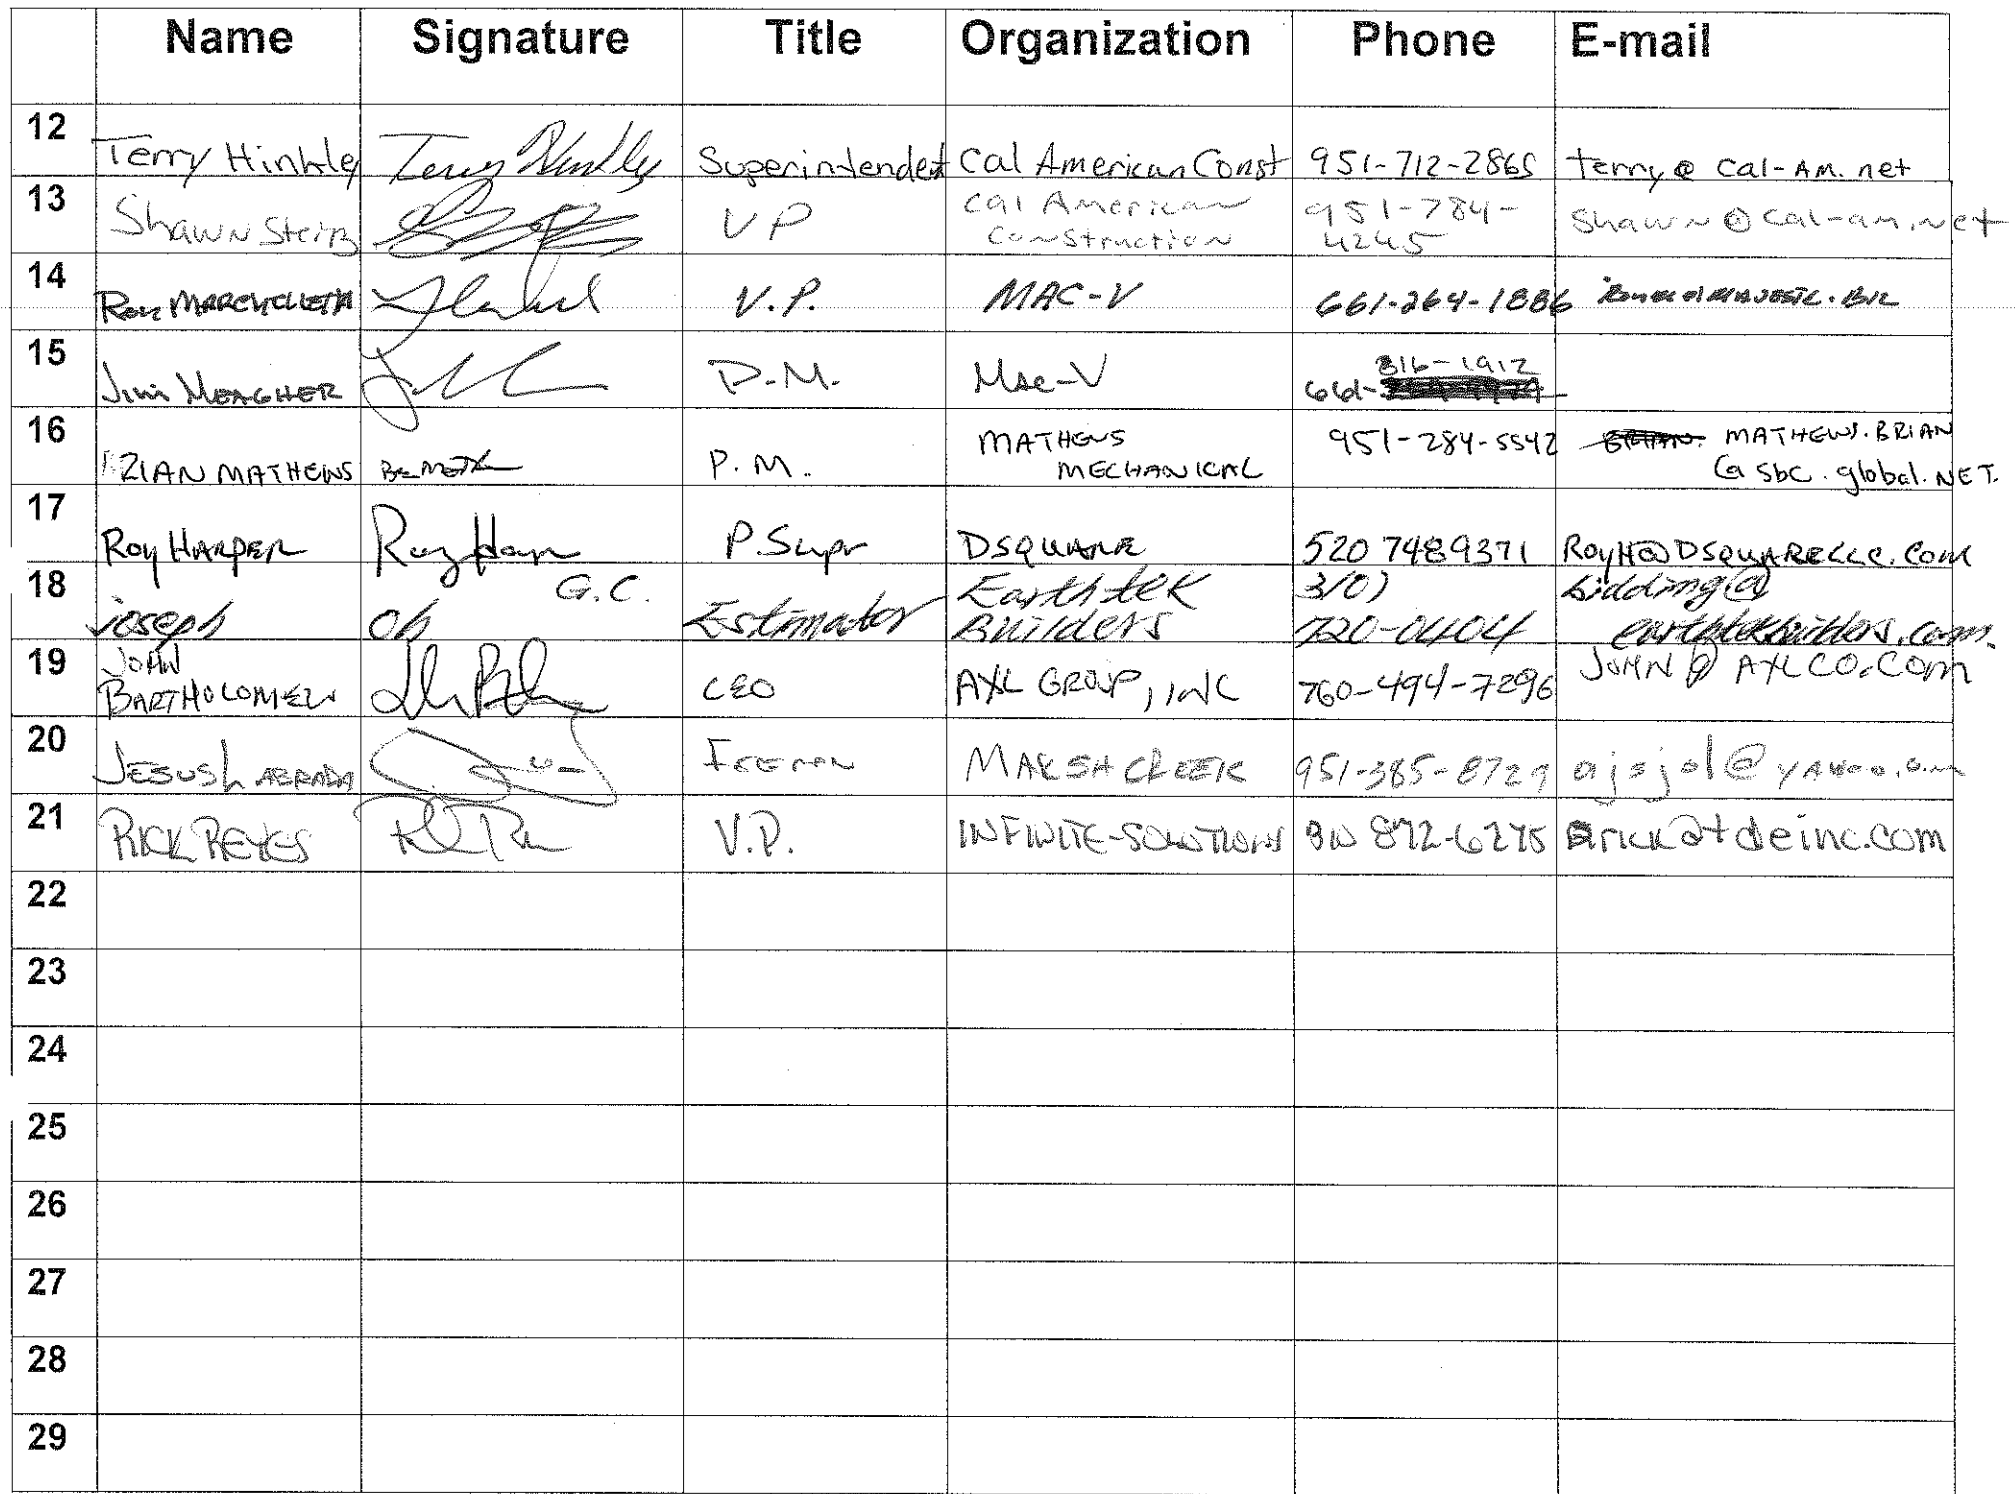 Name Signature Title Organization Phone E-mail
12 Terry Hinkley Terry Hinkley Superintendet Cal American Const 951-712-2865 terry@cal-Am.net
13 Shawn VP Cal American 951-784-
Construction 4245 Shawn@cal-am.net
14 Ron V.P. MAC-V 661-264-1886
15 Jim MEAGHER P.M. Mac-V 316-1912
661-
16 BRIAN MATHEWS P.M. MATHEWS 951-284-5542 MATHEWS.BRIAN
MECHANICAL @sbc.global.NET.
17 Roy HARPER Roy Harper P.Supr DSQUARE 520 7489371 RoyH@DSQUARELLC.com
18 G.C. Earthtek 310) bidding@
joseph oh Estimator Builders 720-0404 earthtekbuilders.com.
19 JOHN
BARTHOLOMEW CEO AXL GROUP, INC 760-494-7296 JOHN@AXLCO.COM
20 JESUS LABRADA MARSH CREEK 951-385-8729 ajsjol@yahoo.com
21 RICK REYES V.P. INFINITE-SOLUTIONS 872-6275 rick@tdeinc.com
22
23
24
25
26
27
28
29